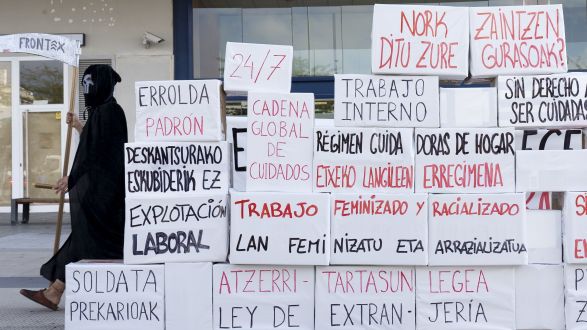 FRONTEX
NORK
DITU ZURE
ZAINTZEN
GURASOAK?
24/7
ERROLDA
PADRÓN
CADENA
GLOBAL
DE
CUIDADOS
TRABAJO
INTERNO
SIN DERECHO A
SER CUIDADA
DESKANTSURAKO
ESKUBIDERIK EZ
RÉGIMEN CUIDA
ETXEKO LANGILEEN
DORAS DE HOGAR
ERREGIMENA
EXPLOTACIÓN
LABORAL
TRABAJO
LAN FEMI
FEMINIZADO Y
NIZATU ETA
RACIALIZADO
ARRAZIALIZATUA
SOLDATA
PREKARIOAK
ATZERRI-
LEY DE
TARTASUN
EXTRAN-
LEGEA
JERÍA